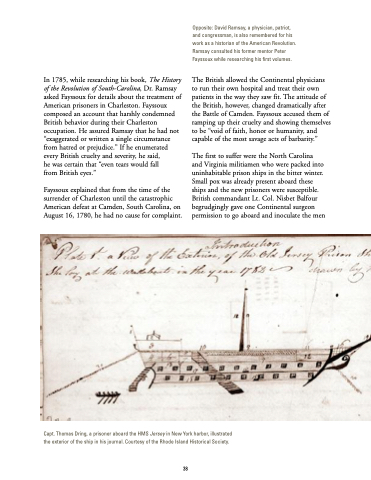 Opposite: David Ramsay, a physician, patriot,
and congressman, is also remembered for his
work as a historian of the American Revolution.
Ramsay consulted his former mentor Peter
Fayssoux while researching his first volumes.
In 1785, while researching his book, The History
of the Revolution of South-Carolina, Dr. Ramsay
asked Fayssoux for details about the treatment of
American prisoners in Charleston. Fayssoux
composed an account that harshly condemned
British behavior during their Charleston
occupation. He assured Ramsay that he had not
“exaggerated or written a single circumstance
from hatred or prejudice.” If he enumerated
every British cruelty and severity, he said,
he was certain that “even tears would fall
from British eyes.”
Fayssoux explained that from the time of the
surrender of Charleston until the catastrophic
American defeat at Camden, South Carolina, on
August 16, 1780, he had no cause for complaint.
The British allowed the Continental physicians
to run their own hospital and treat their own
patients in the way they saw fit. The attitude of
the British, however, changed dramatically after
the Battle of Camden. Fayssoux accused them of
ramping up their cruelty and showing themselves
to be “void of faith, honor or humanity, and
capable of the most savage acts of barbarity.”
The first to suffer were the North Carolina
and Virginia militiamen who were packed into
uninhabitable prison ships in the bitter winter.
Small pox was already present aboard these
ships and the new prisoners were susceptible.
British commandant Lt. Col. Nisbet Balfour
begrudgingly gave one Continental surgeon
permission to go aboard and inoculate the men
Introduction
Plate 1. a View of the Exterior, of the Old Jersey Prison Sh
in the year 1782
drawn by
Capt. Thomas Dring, a prisoner aboard the HMS Jersey in New York harbor, illustrated
the exterior of the ship in his journal. Courtesy of the Rhode Island Historical Society.
38